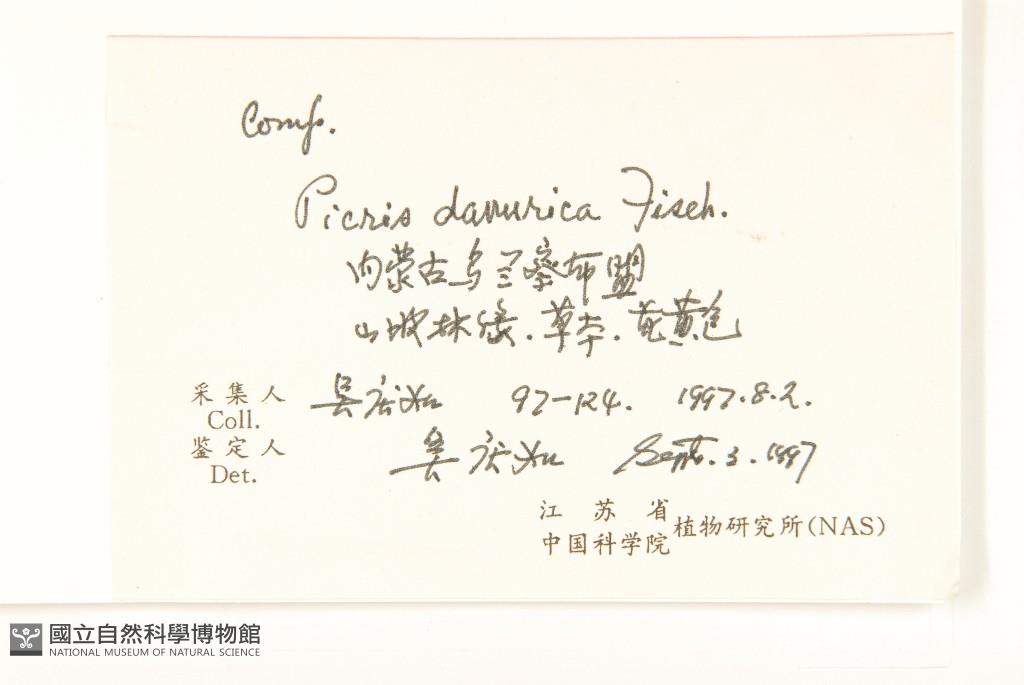 Comp.
Picris davurica Fisch.
内蒙古乌兰察布盟
山坡林缘.草本.花黄色
采集人 吴庆如 97-124. 1997.8.2.
Coll.
鉴定人 吴庆如 Sept. 3. 1997
Det.
江苏省
中国科学院 植物研究所(NAS)
國立自然科學博物館
NATIONAL MUSEUM OF NATURAL SCIENCE